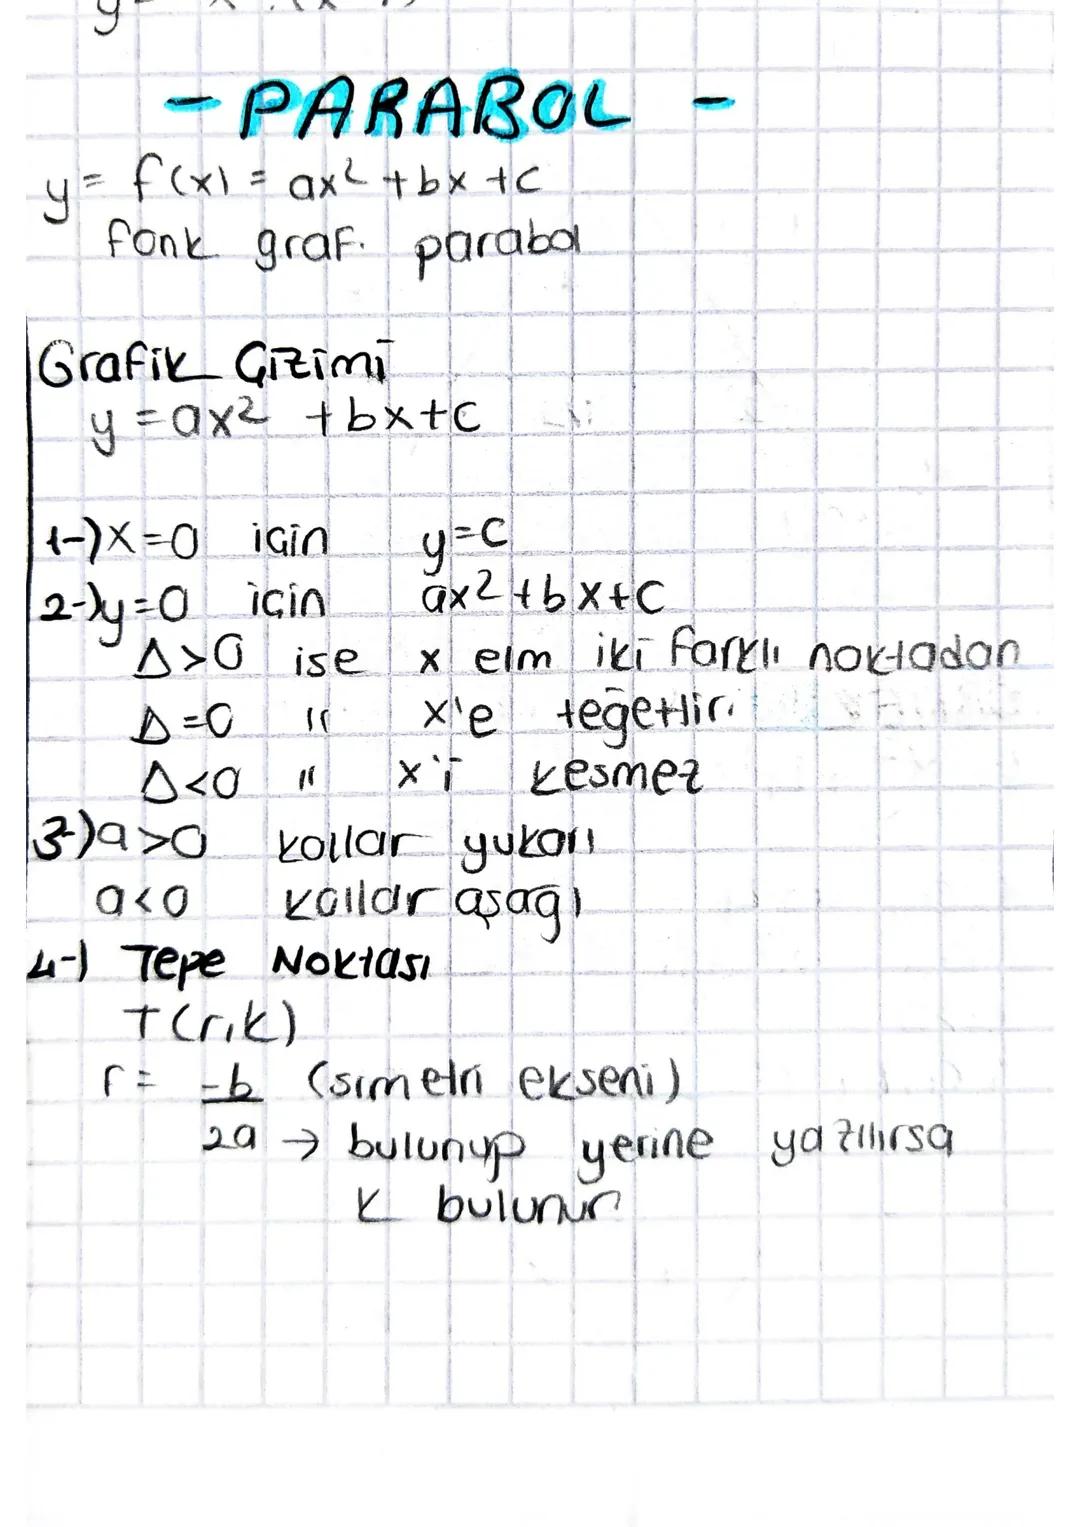 - PARABOL -
y = f(x) = ax² + bx + c
fonk graf. parabol
Grafik Çizimi
y = ax² + bx + c
1-) x=0 için y=c
2-) y=0 için ax²+bx+c
Δ>0 ise x eim iki farklı noktadan
Δ=0 " x'e teğettir.
Δ<0 " x'i kesmez
3-) a>0 kollar yukarı
a<0 kollar aşağı
4-) Tepe Noktası
T(r,k)
r = -b (simetri ekseni)
2a → bulunup yerine yazılırsa
k bulunur